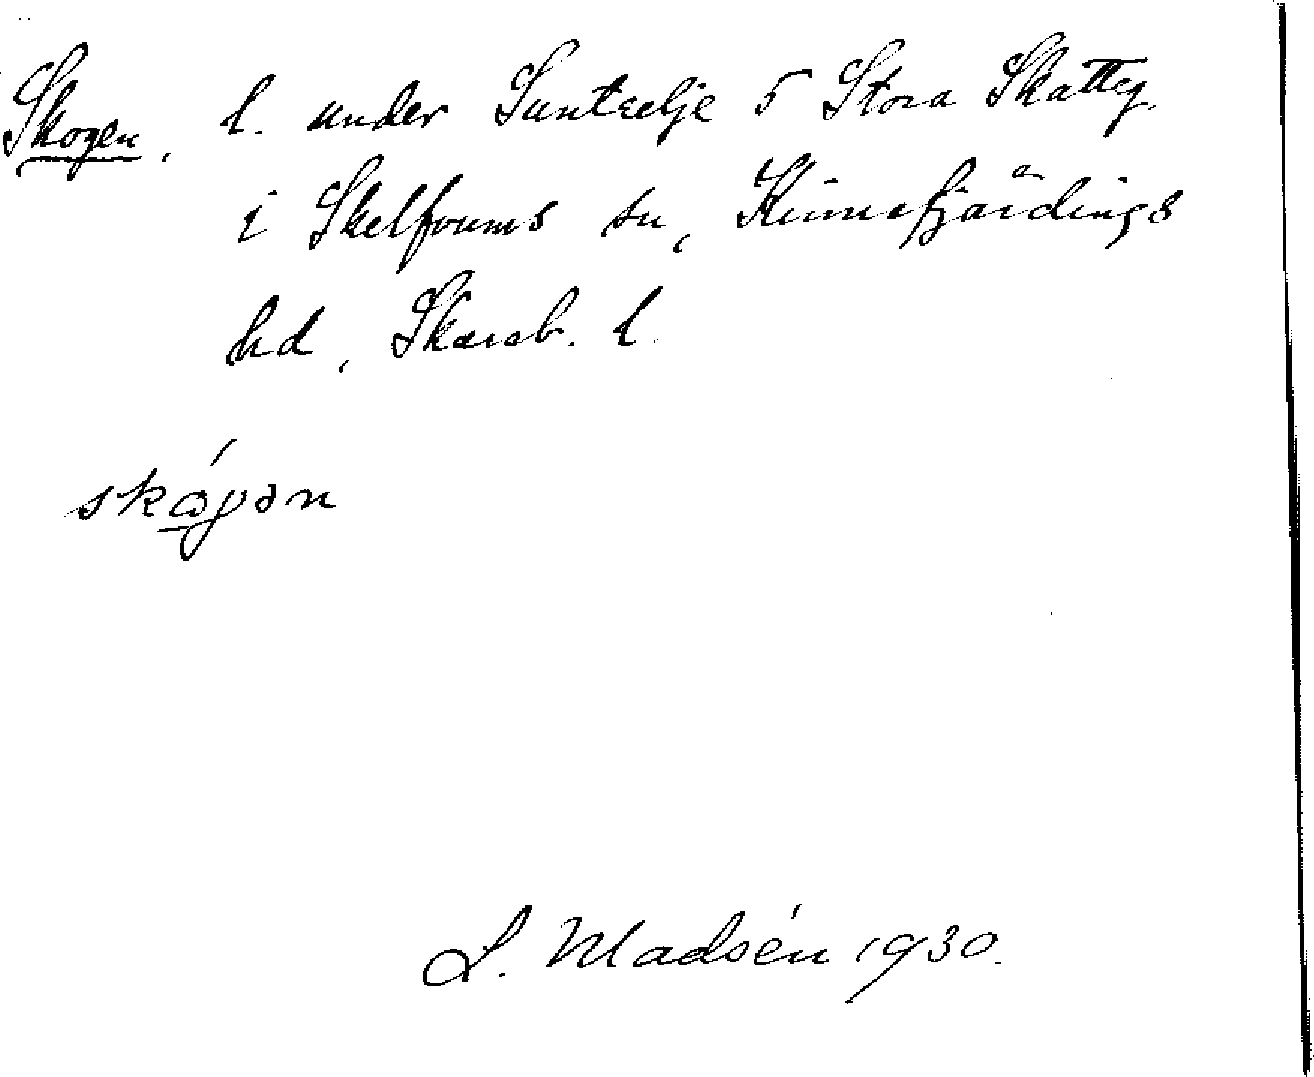 Skogen, l. under Suntelje 5 Stora Skatteg.
i Skelfvums sn, Kinnefjärdings
hd, Skarab. l.
skógən
L. Madsén 1930.